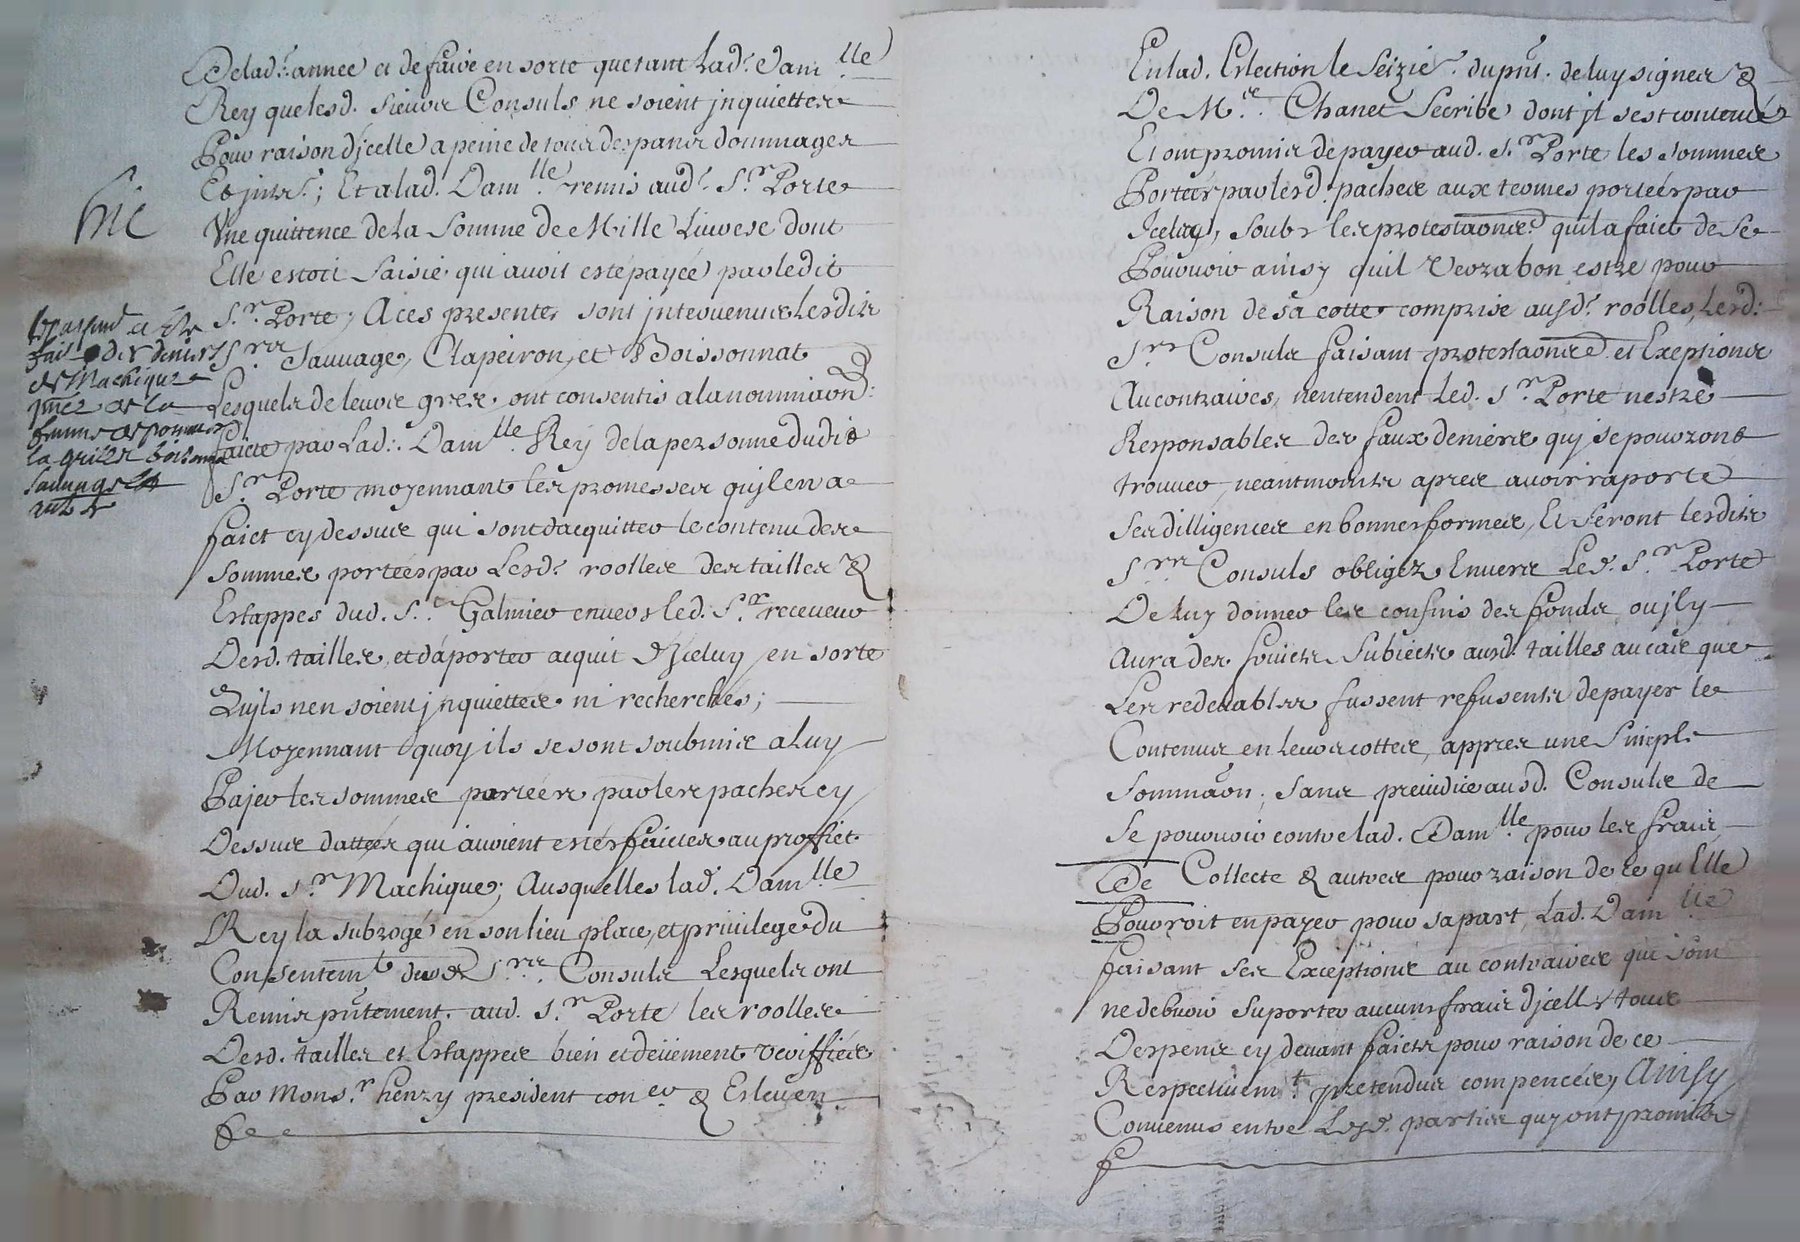 Delad.e année et de faire en sorte que tant Lad.e Dam.lle
Rey que lesd. sieurs Consuls ne soient jnquiettés
Pour raison d'jcelle a peine de tous despans dommages
Et jnter.; Et a lad. Dam.lle remis aud.t S.r Porte
Vne quittence de La Somme de Mille Liuvres dont
Elle estoit saisie qui auoit esté payée par ledit
S.r Porte; A ces presentes sont jnteruenus Lesdits
S.rs Sauuage, Clapeiron, et Boissonnat
Lesquels de leurs grés, ont consentis a la nommiaon
faicte par Lad.: Dam.lle Rey de la personne dudit
S.r Porte moyennant les promesses qujl en a
faict cy dessus qui sont d'acquitter le contenu des
Sommes portées par Lesd.s roolles des tailles &
Estappes dud. S.r Galmier enuers led. S.r receueur
Desd. tailles, et d'aporter acquit d'jceluy en sorte
Qujls nen soient jnquiettés ni recherchés;
Moyennant quoy ils se sont soubmis a Luy
Pajer les sommes portées par les paches cy
Dessus dattées qui auoient estés faictes au proffict
Dud. S.r Machique; Ausquelles lad. Dam.lle
Rey la subrogé en son lieu place, et priuilege du
Consentem.t desd. S.rs Consuls Lesquels ont
Remis pntement. aud. S.r Porte les roolles
Desd. tailles et Estappes bien et deüement veriffiés
Par Mons.r henry president con.er & Esleu en
hic
fait des deniers
de Machique
de la
femme
la
sauuage
Enlad. Eslection le seizie.e du pnt. de luy signés &
De M.re Chanet Secribe dont jl s'est contenté
Et ont promis de payer aud. S.r Porte les sommes
Portées par lesd. paches aux termes portées par
Jceluy, soubs les protestaons qu'il a faict de se
Pouruoir ainsy quil verra bon estre pour
Raison de sa cotte comprise ausd.s roolles, Lesd.
S.rs Consuls faisant protestaons et Exeptions
Au contraires, n'entendent Led. S.r Porte n'estre
Responsables des faux deniers qui se pourront
trouuer, neantmoints apres auoir raporté
Ses dilligences en bonnes formes, Et seront lesdits
S.rs Consuls obligez Enuers Led. S.r Porte
De Luy donner les confins des fonds ou jl y
Aura des fruicts Subiects ausd. tailles au cas que
Les redeuables fussent refusents de payer le
Contenus en leurs cottes, appres une simple
Sommaon; sans preiudice ausd. Consuls de
Se pouruoir contre lad. Dam.lle pour les frais
De Collecte & autres pour raison de ce qu'Elle
Pourroit en payer pour sa part, Lad. Dam.lle
faisant ses Exceptions au contraires qui sont
ne debuoir suporter aucuns frais d'jcelle tous
Despens cy deuant faicts pour raison de ce
Respectiuem.t pretendus compencés, Ainsy
Conuenus entre Lesd. parties quy ont promis